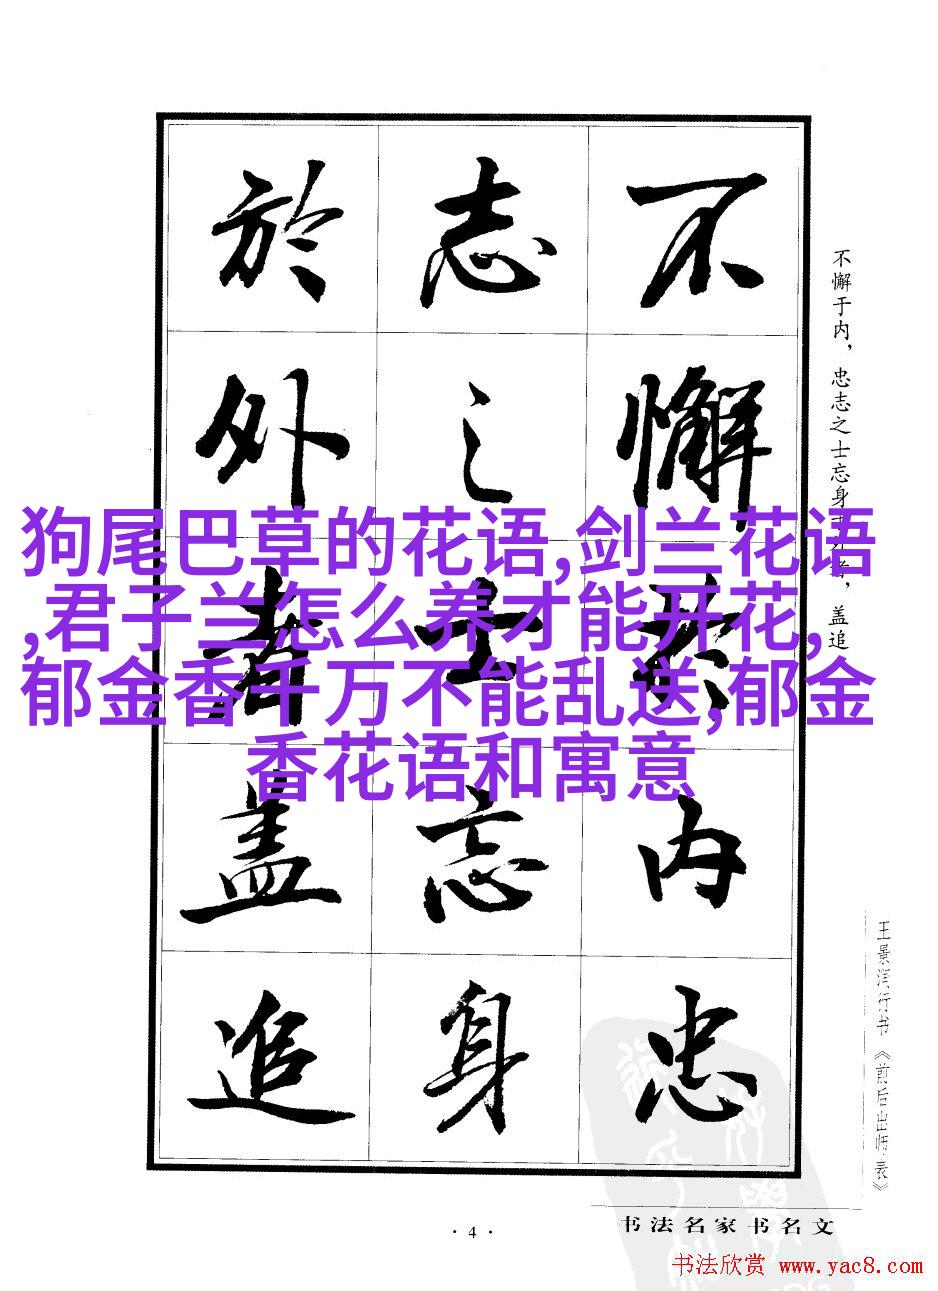 不懈于内，忠志之士忘身于外者，盖追
不懈於内忠
志之士忘身
於外者盖追
狗尾巴草的花语,剑兰花语
,君子兰怎么养才能开花,
郁金香千万不能乱送,郁金
香花语和寓意
王景行书《前后出师表》
·4·
书法名家书名文
书法欣赏 www.yac8.com